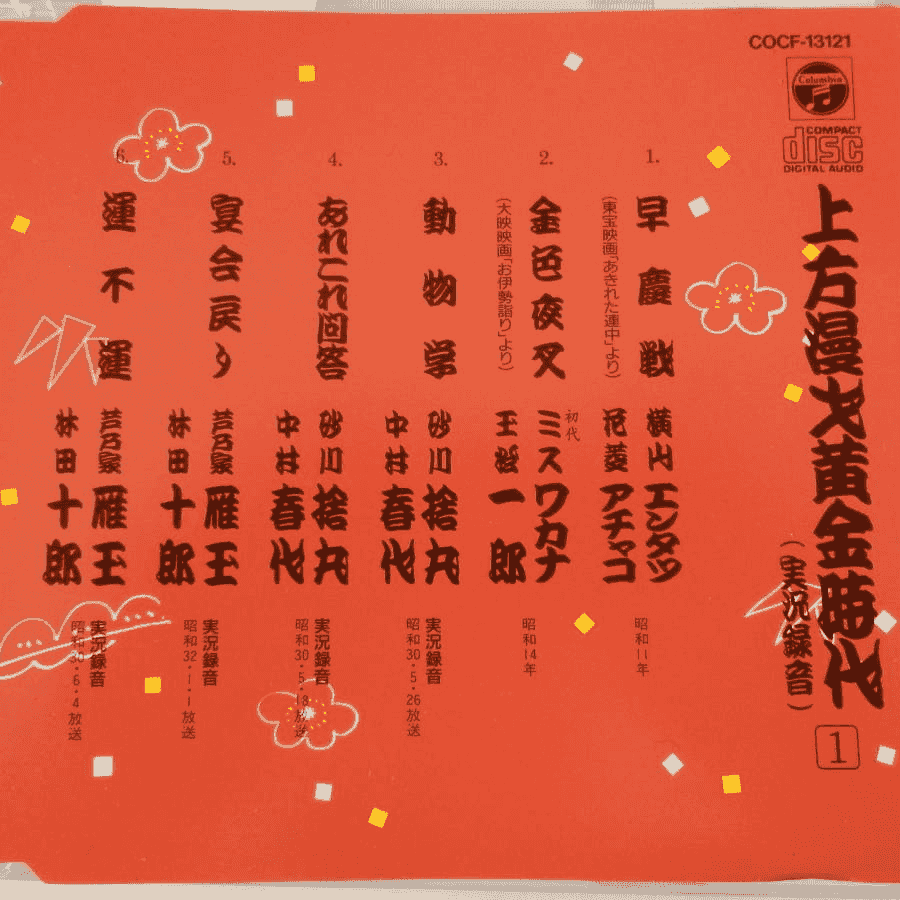 COCF-13121
Columbia
COMPACT
disc
DIGITAL AUDIO
上方漫才黄金時代
(実況録音)
1
1.
早慶戦
(東宝映画「あきれた連中」より)
横山エンタツ
花菱アチャコ
昭和11年
2.
金色夜叉
(大映映画「お伊勢詣り」より)
初代
ミスワカナ
玉松一郎
昭和14年
3.
動物学
砂川捨丸
中村春代
実況録音
昭和30・5・26放送
4.
あれこれ問答
砂川捨丸
中村春代
実況録音
昭和30・5・18放送
5.
宴会戻り
芦乃家雁玉
林田十郎
実況録音
昭和32・1・1放送
6.
運不運
芦乃家雁玉
林田十郎
実況録音
昭和30・6・4放送